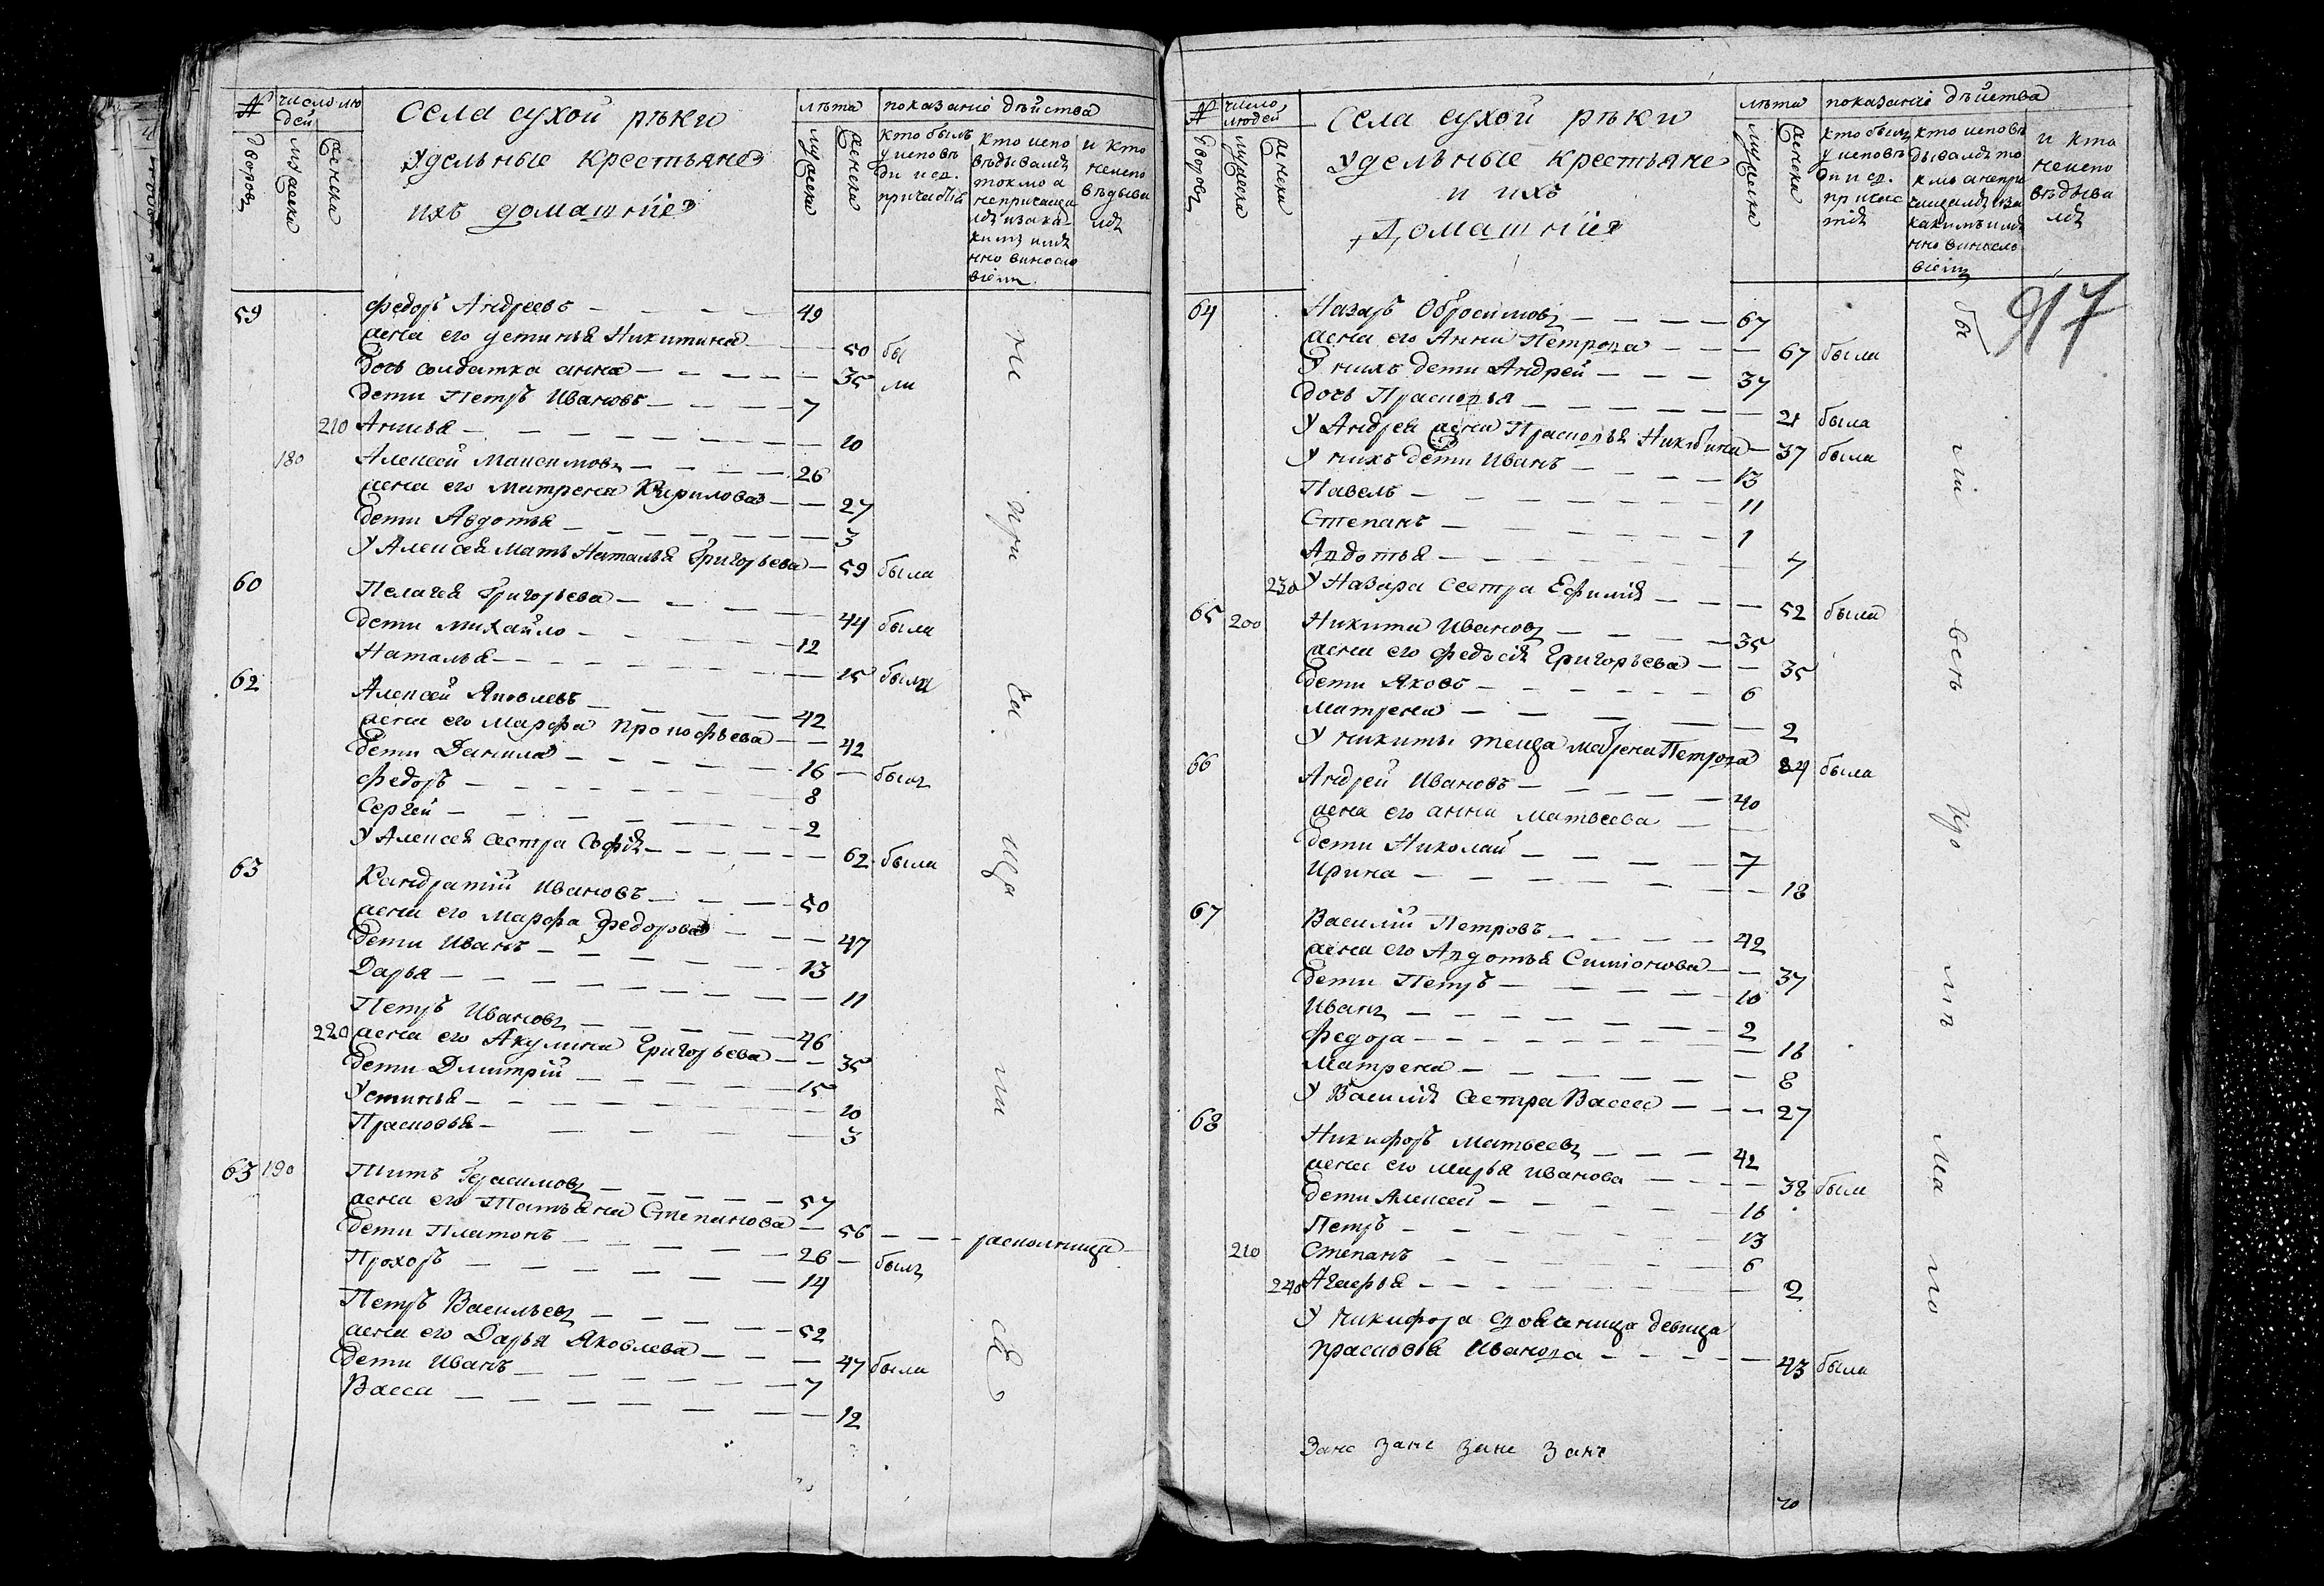 № число людей Села сухой рѣки лѣта показаніе дѣйства
дворовъ мужеска женска удельные крестьяне мужеска женска кто былъ у исповѣди и св. причастія кто исповѣдывался токмо а непричащался и за какимъ имянно винословіемъ и кто неисповѣдывался
ихъ домашніе
59 Федоръ Андреевъ 49
жена его устинья Никитина 50 бы
дочь солдатка анна 35 ли
дети Петръ Ивановъ 7
210 Анисья 10
180 Алексей Максимовъ 26
жена его Матрена Кирилова 27
дети Авдотья 3
у Алексея мать Наталья Григорьева 59 была
60 Пелагея Григорьева 44 была
дети михайло 12
Наталья 15 была
62 Алексей Яковлевъ 42
жена его Марфа Прокофьева 42
дети Данила 16 былъ
Федоръ 8
Сергей 2
у Алексея сестра Софія 62 была
63 Кандратій Ивановъ 50
жена его Марфа Федорова 47
дети Иванъ 13
Дарья 11
Петръ Ивановъ 46
220 жена его Акулина Григорьева 35
дети Дмитрій 15
Устинья 10
Прасковья 3
63 190 Титъ Герасимовъ 57
жена его Татьяна Степанова 56 раскольница
дети Платонъ 26 былъ
Прохоръ 14
Петръ Васильевъ 52
жена его Дарья Яковлева 47 была
дети Иванъ 7
Васса 12
не при ча ща ли сѧ
№ число людей Села сухой рѣки лѣта показаніе дѣйства
дворовъ мужеска женска удельные крестьяне мужеска женска кто былъ у исповѣди и св. причастія кто исповѣдывался токмо а непричащался за какимъ имянно винословіемъ и кто неисповѣдывался
и ихъ
домашніе
97
64 Назаръ Обросимовъ 67
жена его Анна Петрова 67 была
У нихъ дети Андрей 37
дочь Прасковья 21 была
У Андрея жена Прасковья Никитина 37 была
У нихъ дети Иванъ 13
Павелъ 11
Степанъ 1
Авдотья 7
230 У Назара Сестра Ефимія 52 была
65 200 Никита Ивановъ 35
жена его Федосія Григорьева 35
дети Яковъ 6
Матрена 2
У никиты теща Матрена Петрова 84 была
66 Андрей Ивановъ 40
жена его анна Матвеева
дети Николай 7
Ирина 18
67 Василій Петровъ 42
жена его Авдотья Симіонова 37
дети Петръ 10
Иванъ 2
Федора 16
Матрена 8
У Василія Сестра Васса 27
68 Никифоръ Матвеевъ 42
жена его Марья Иванова 38 была
дети Алексей 16
Петръ 13
210 Степанъ 6
240 Агафья 2
У Никифора своячница девица
Прасковья Иванова 43 была